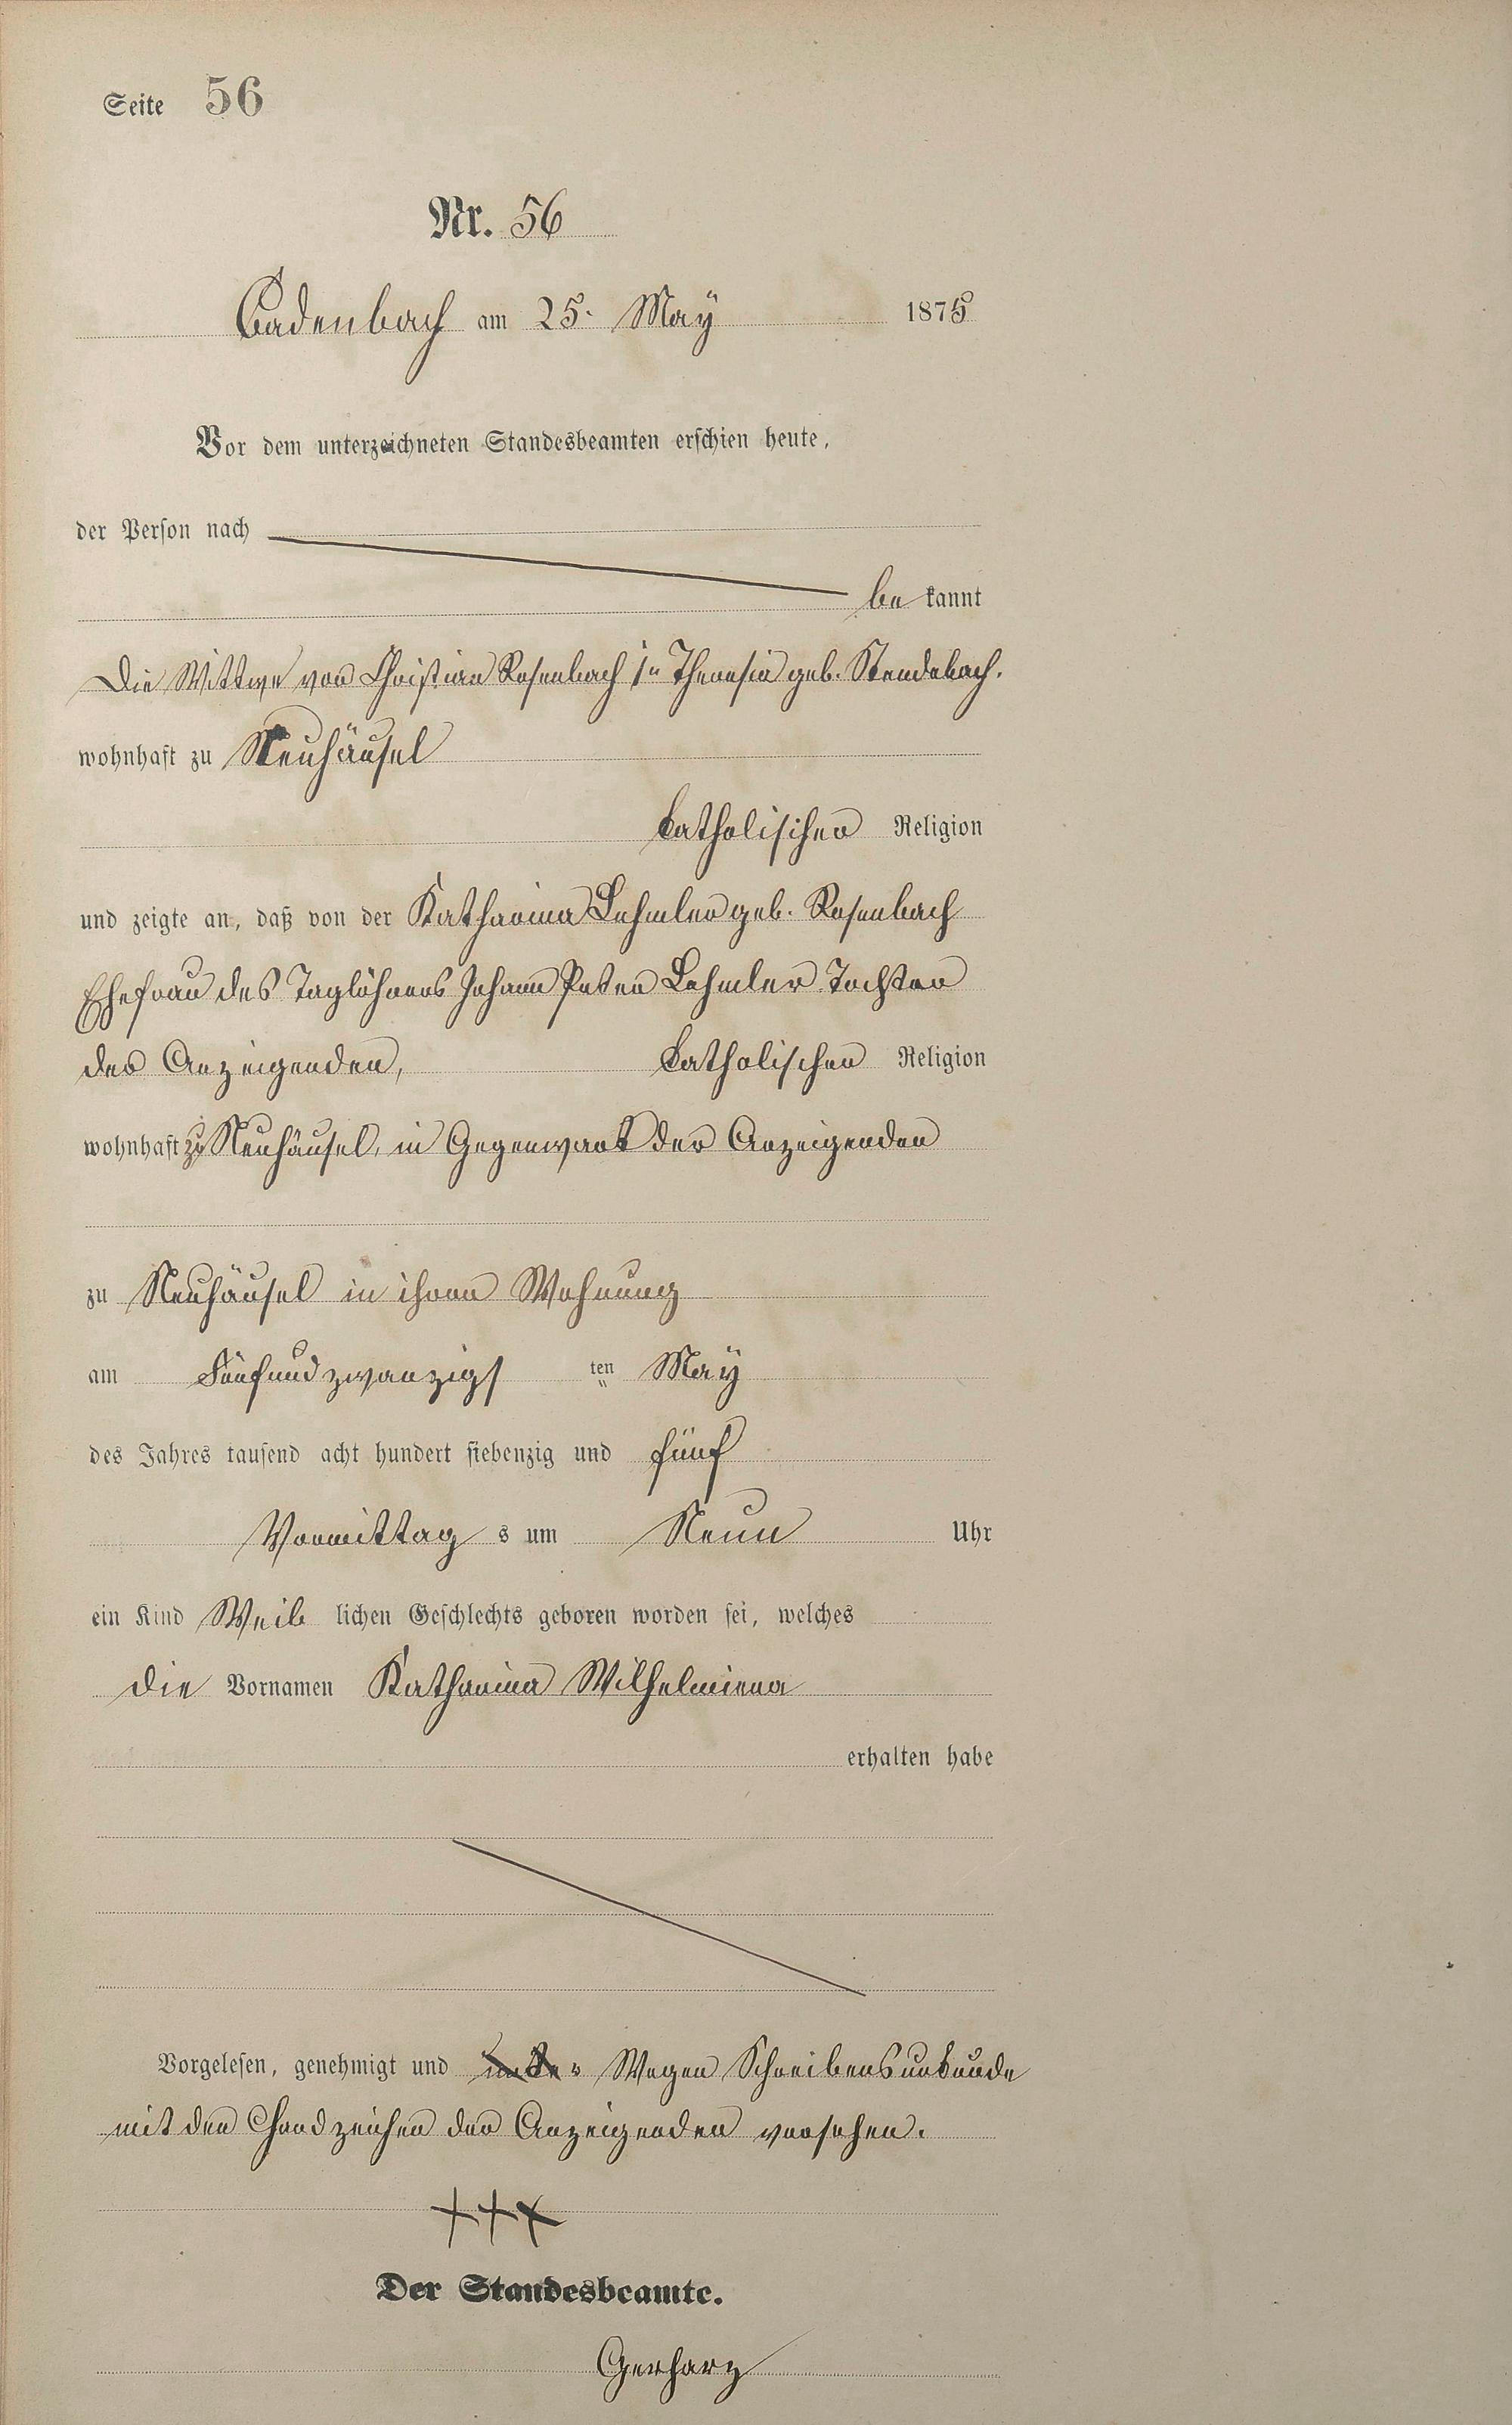 Seite 56
Nr. 56
Cadenbach am 25. May 1875
Vor dem unterzeichneten Standesbeamten erschien heute,
der Person nach
be kannt
Die Wittwe von Christian Rosenbach 1r Theresia geb. Stendebach.
wohnhaft zu Neuhäusel
katholischer Religion
und zeigte an, daß von der Katharina Lehmler geb. Rosenbach
Ehefrau des Taglöhners Johann Peter Lehmler Tochter
der Anzeigenden, katholischer Religion
wohnhaft zu Neuhäusel, in Gegenwart der Anzeigenden
zu Neuhäusel in ihrer Wohnung
am Fünfundzwanzigs ten May
des Jahres tausend acht hundert siebenzig und fünf
Vormittag s um Neun Uhr
ein Kind Weib lichen Geschlechts geboren worden sei, welches
die Vornamen Katharina Wilhelmiena
erhalten habe
Vorgelesen, genehmigt und Wegen Schreibensunkunde
mit den Handzeichen der Anzeigenden versehen.
+++
Der Standesbeamte.
Gerharz